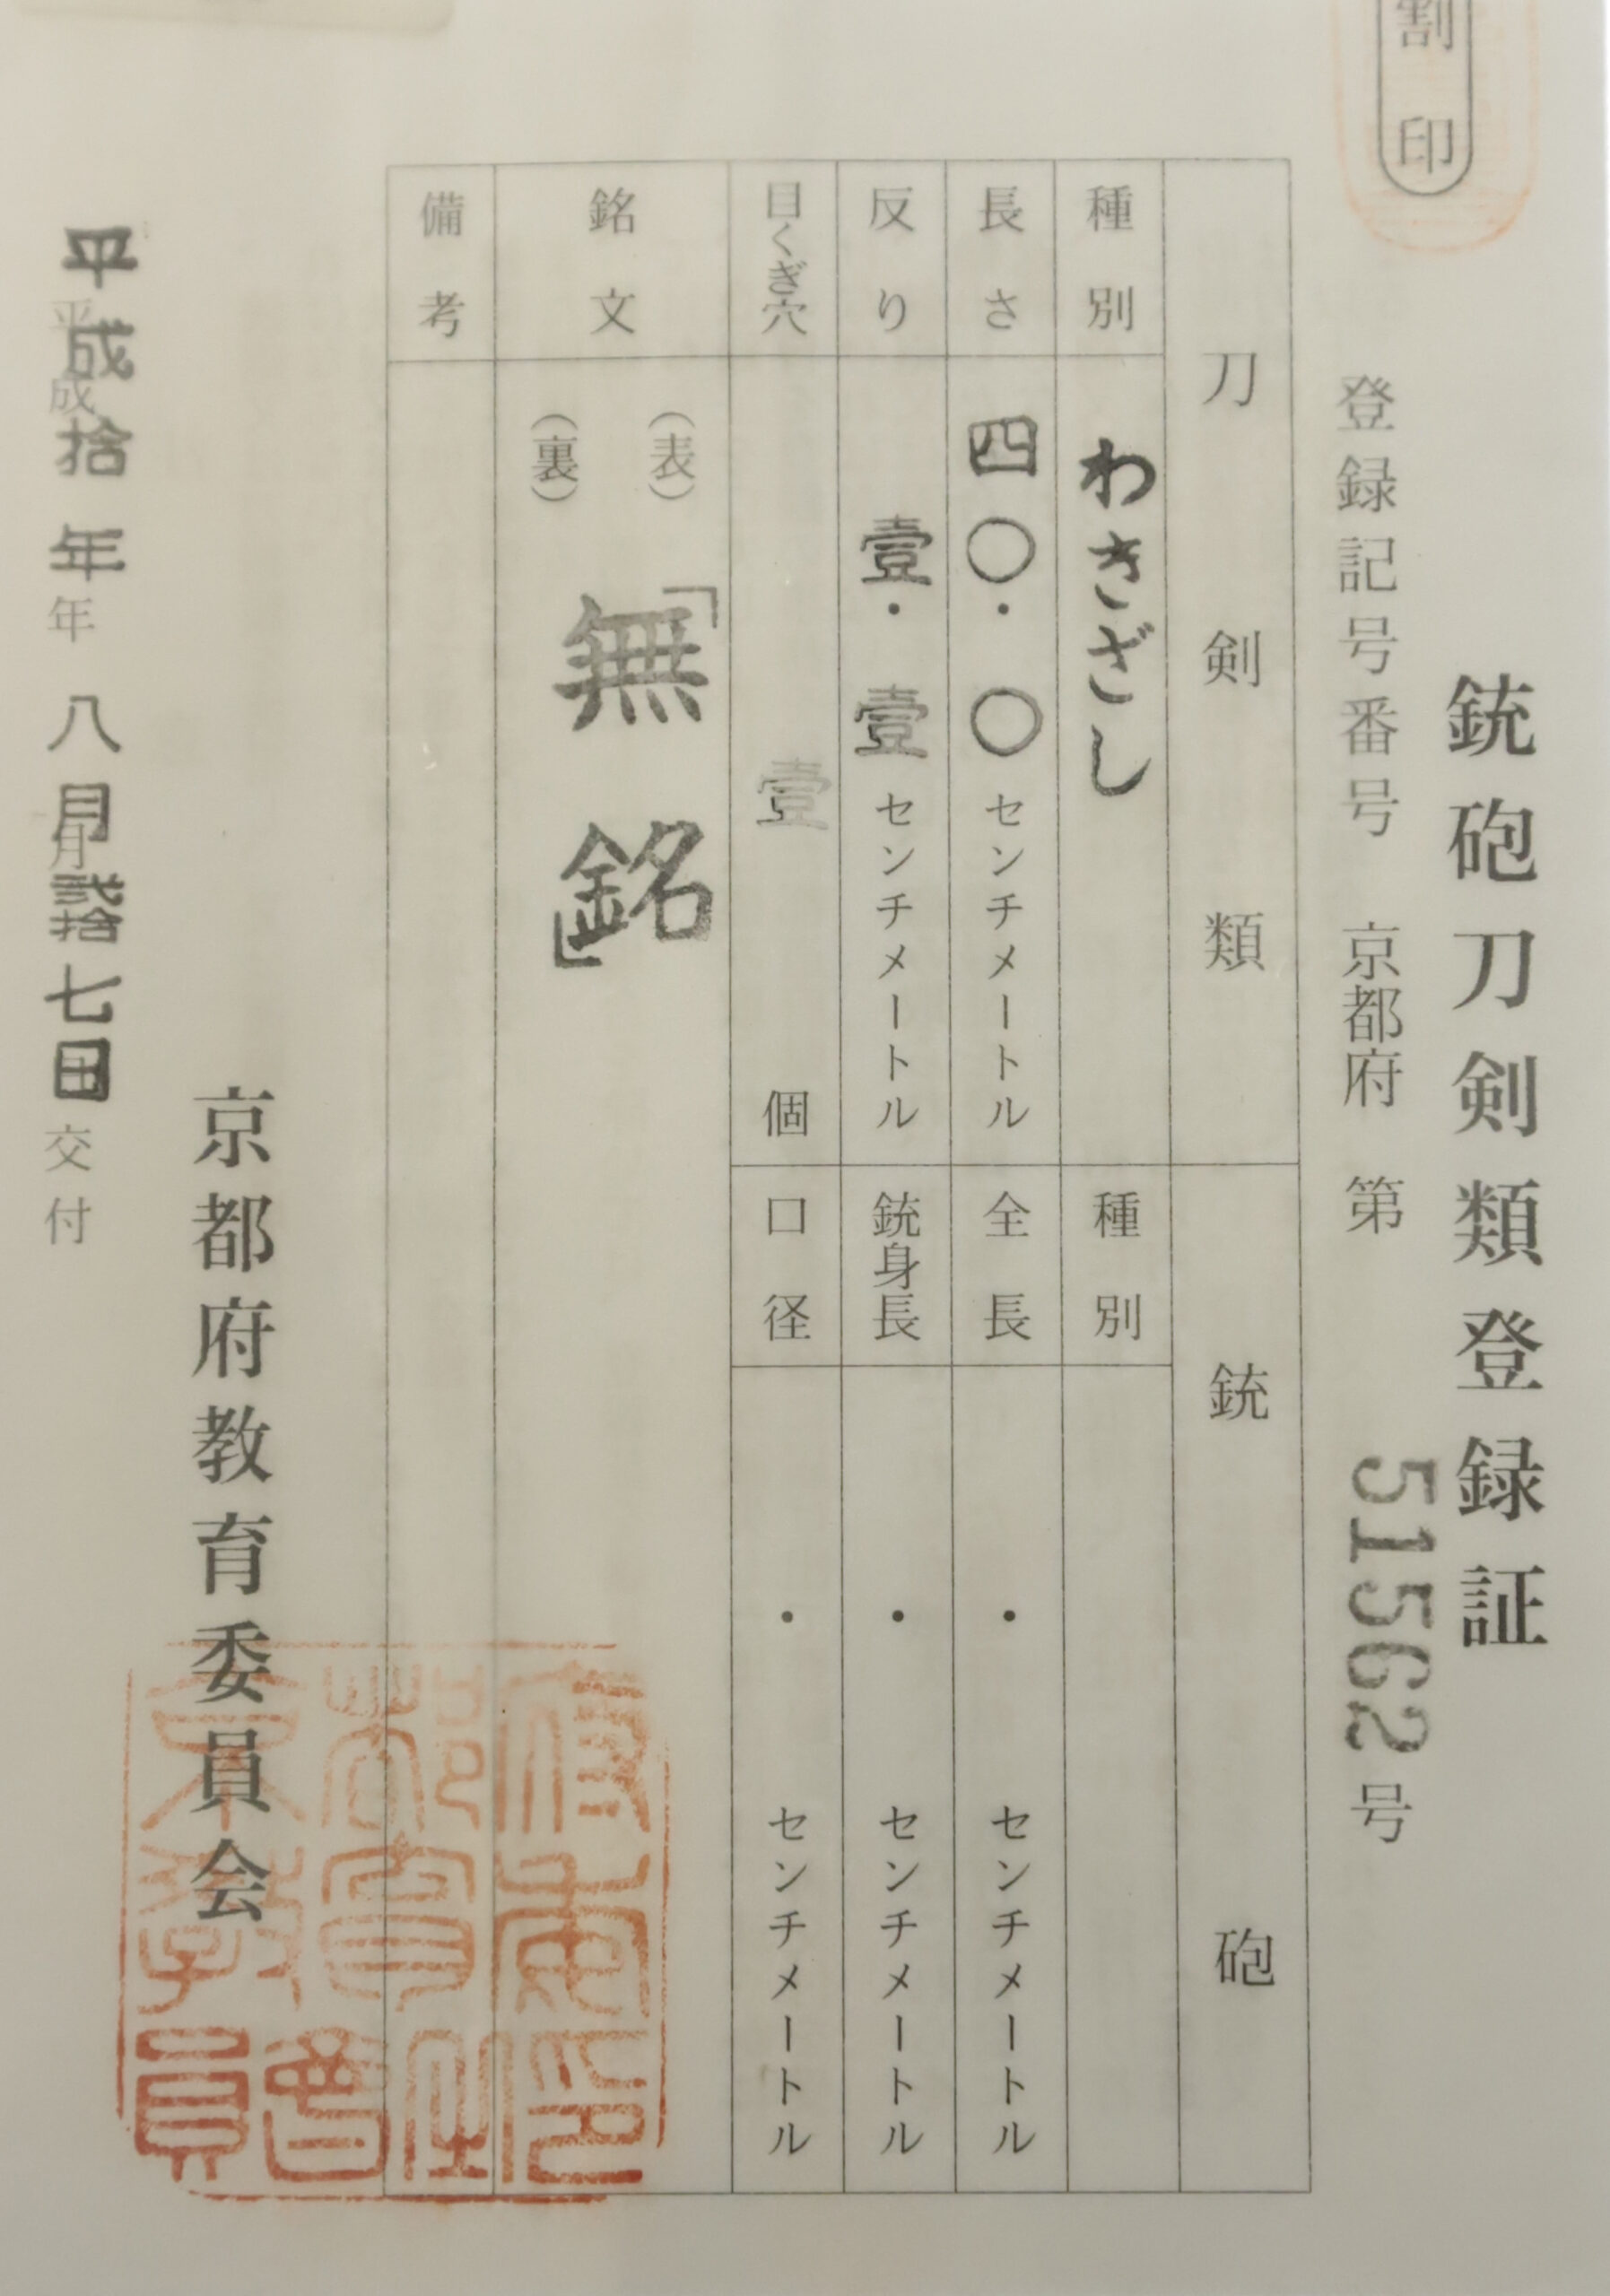 割印
銃砲刀剣類登録証
登録記号番号 京都府 第 51562 号
刀剣類
種別 わきざし
長さ 四〇・〇センチメートル
反り 壹・壹センチメートル
目くぎ穴 壹 個
銘文 (表) (裏) 「無銘」
備考
銃砲
種別
全長 ・ センチメートル
銃身長 ・ センチメートル
口径 ・ センチメートル
京都府教育委員会
平成拾年八月弐拾七日交付